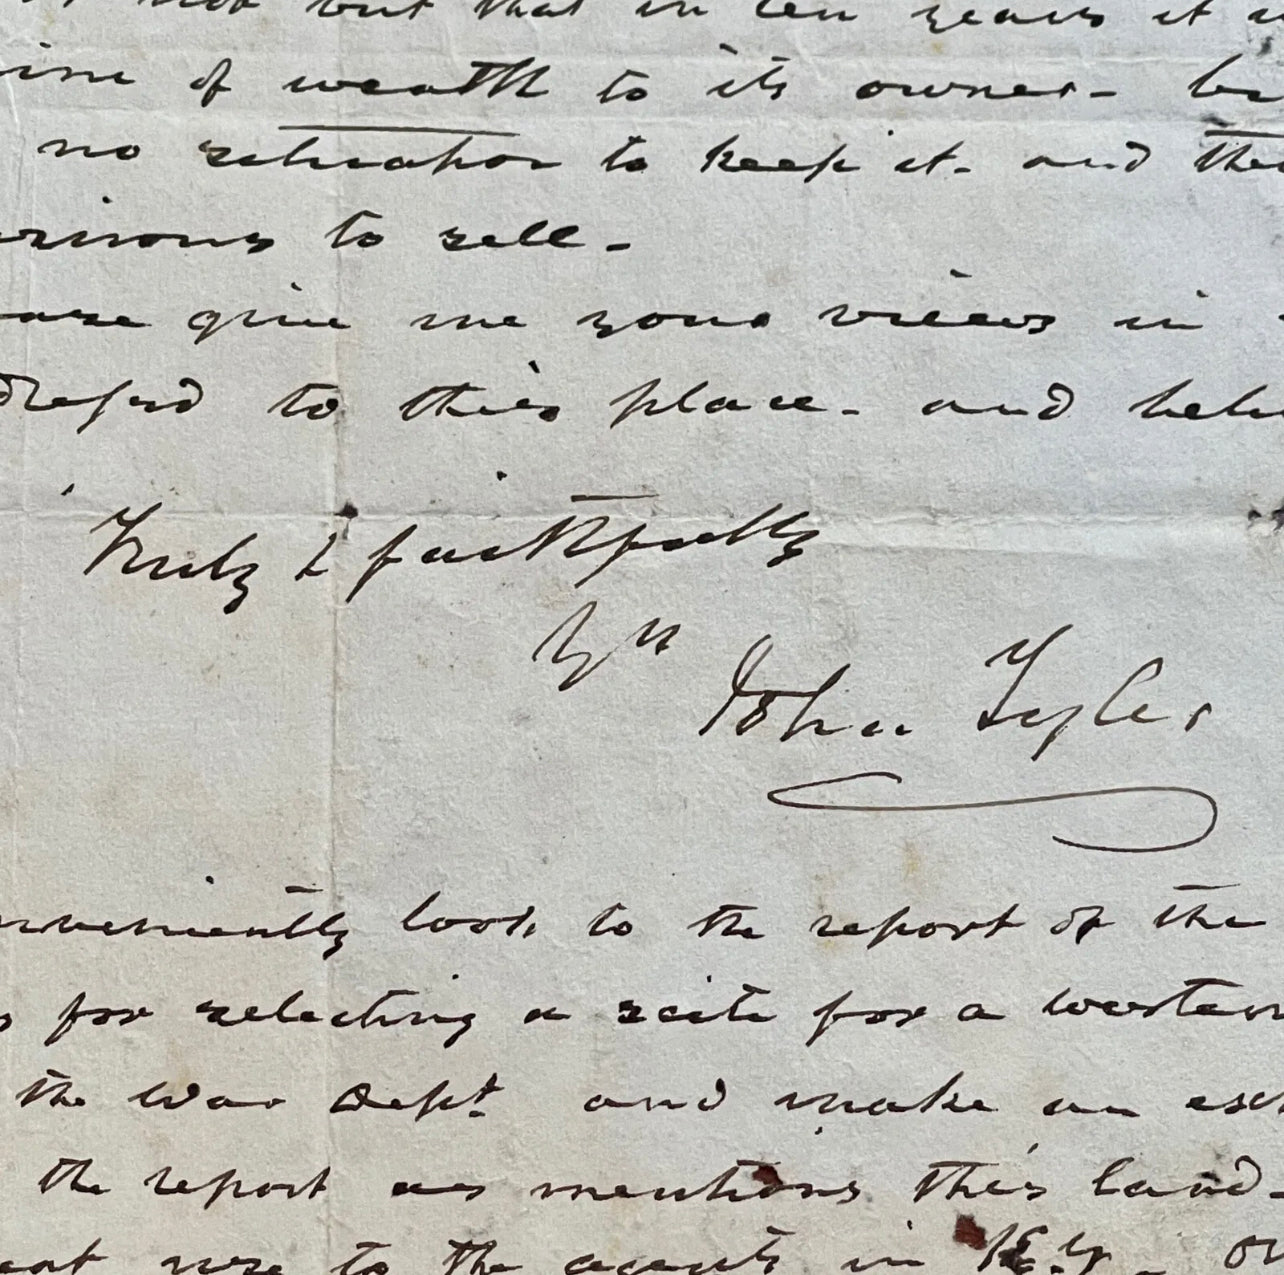 but that in ten years it
of wealth to its owner - b
no situation to keep it - and the
to sell -
give me your views in
to this place - and
Truly & faithfully
Yrs
John Tyler
look to the report of the
for selecting a scite for a western
the War Dept. and make an
the report as mentions this land -
to the agents in Ky. or